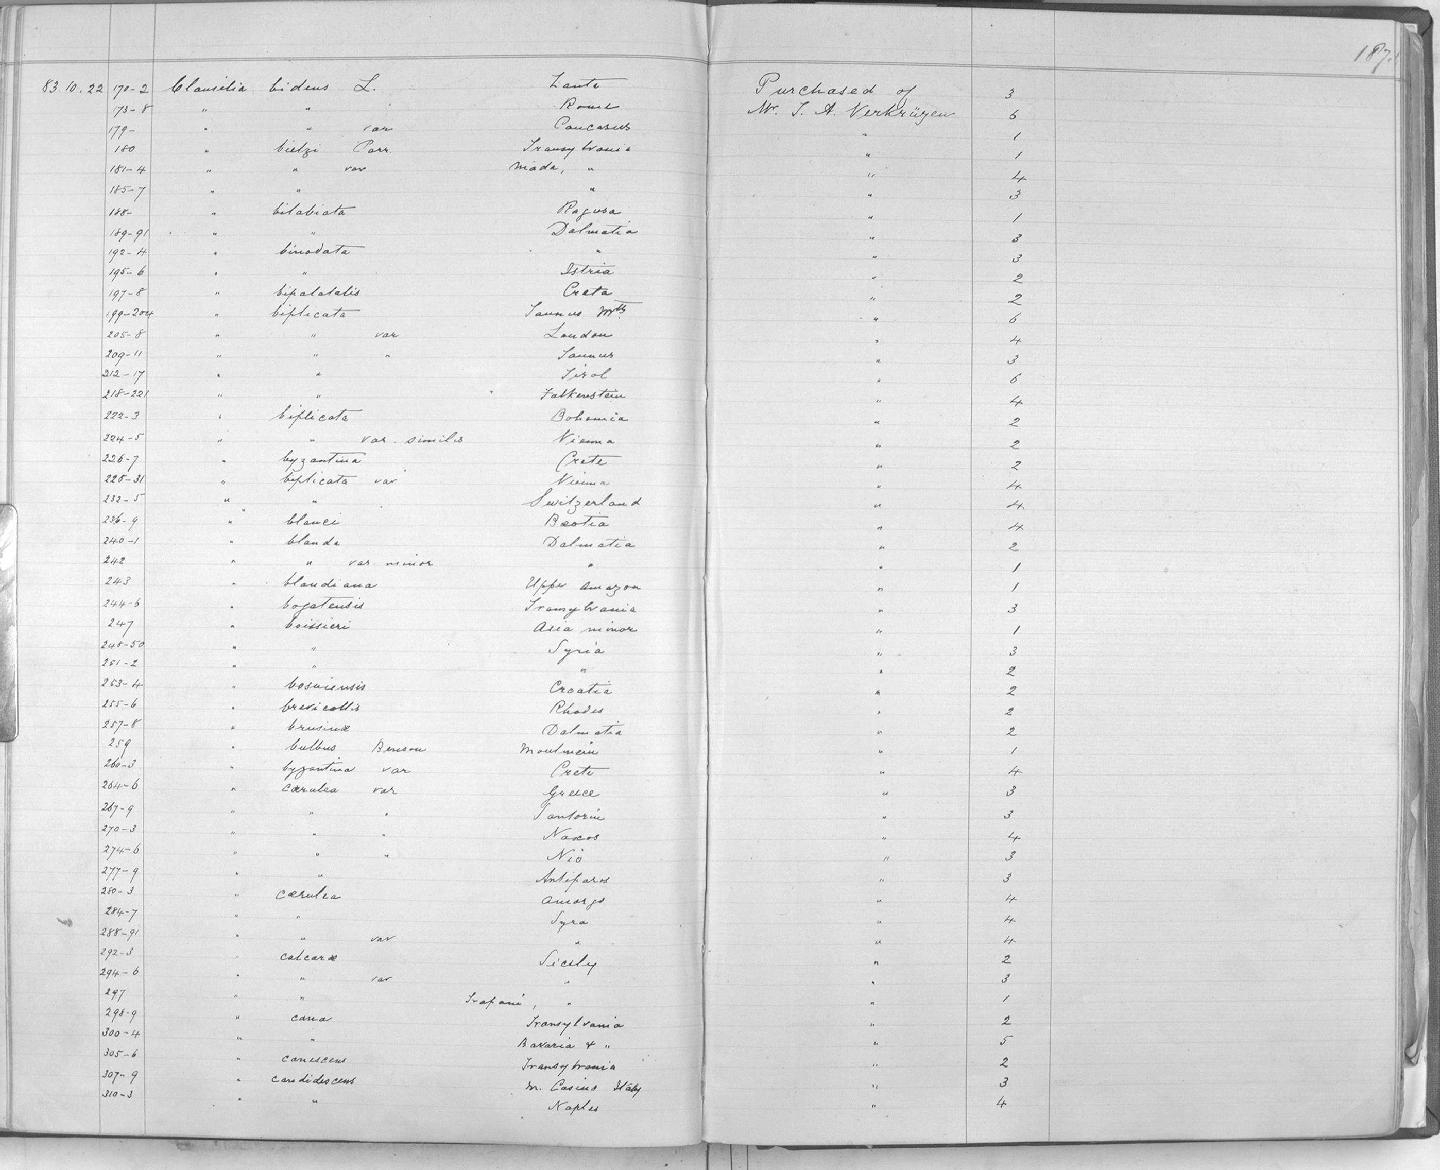 187.
83.10.22 170-2 Clausilia bidens L. Zante Purchased of 3
173-8 " " Rome Mr. T. A. Verkrüzen 6
179- " " var Caucasus " 1
180 " bielzi Parr. Transylvania " 1
181-4 " " var " " 4
185-7 " " " " 3
188- " bilabiata Ragusa " 1
189-91 " " Dalmatia " 3
192-4 " binodata " " 3
195-6 " " Istria " 2
197-8 " bipalatalis Creta " 2
199-204 " biplicata Taunus Mts " 6
205-8 " " var London " 4
209-11 " " " Taunus " 3
212-17 " " Tirol " 6
218-221 " " Falkenstein " 4
222-3 " biplicata Bohemia " 2
224-5 " " var. similis Vienna " 2
226-7 " byzantina Crete " 2
228-31 " biplicata var Vienna " 4
232-5 " " Switzerland " 4
236-9 " blanci Bæotia " 4
240-1 " blanda Dalmatia " 2
242 " " var minor " " 1
243 " blandiana Upper Amazon " 1
244-6 " bogatensis Transylvania " 3
247 " boissieri Asia minor " 1
248-50 " " Syria " 3
251-2 " " " " 2
253-4 " bosniensis Croatia " 2
255-6 " brevicollis Rhodes " 2
257-8 " brusinæ Dalmatia " 2
259 " bulbus Benson Moulmein " 1
260-3 " byzantina var Crete " 4
264-6 " cærulea var Greece " 3
267-9 " " " Santorin " 3
270-3 " " " Naxos " 4
274-6 " " " Nio " 3
277-9 " " Antiparos " 3
280-3 " cærulea Amorgo " 4
284-7 " " Syra " 4
288-91 " " var " " 4
292-3 " calcaræ Sicily " 2
294-6 " " var " " 3
297 " " Trapani, " " 1
298-9 " cana Transylvania " 2
300-4 " " Bavaria & " " 5
305-6 " canescens Transylvania " 2
307-9 " candidescens M. Casino Italy " 3
310-3 " " Naples " 4